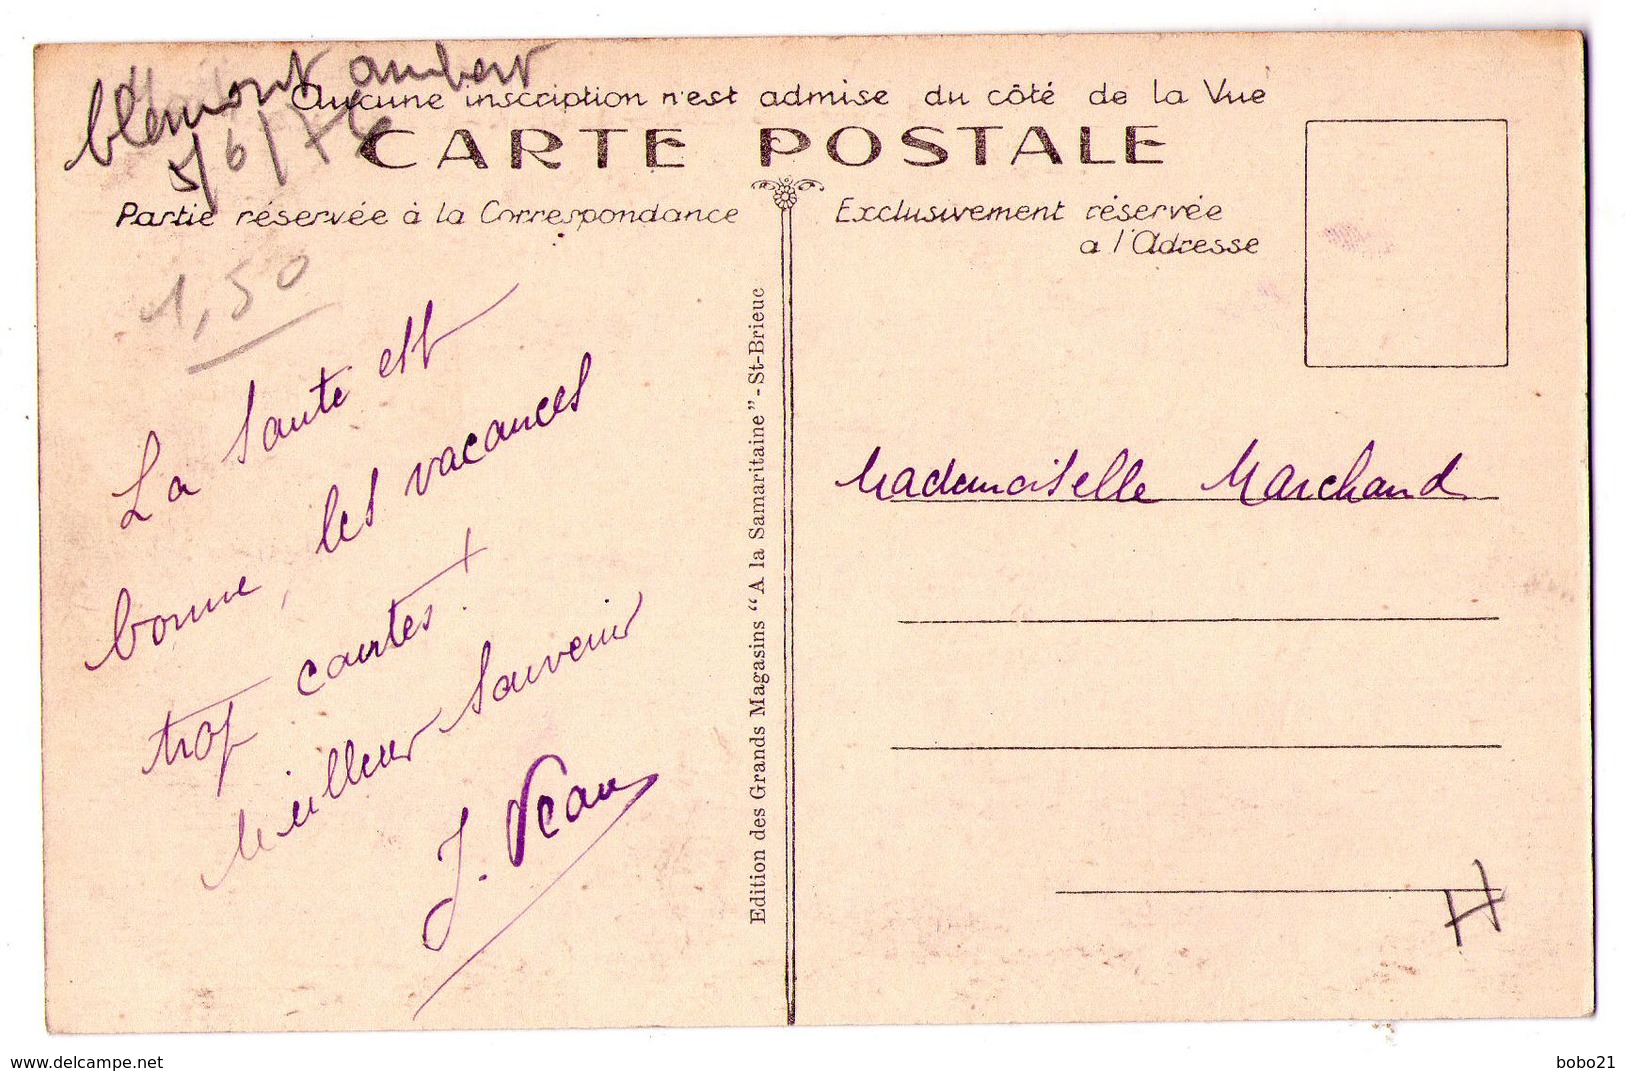 blémont aubert
5/6/76
Aucune inscription n'est admise du côté de la Vue
CARTE POSTALE
Partie réservée à la Correspondance
Exclusivement réservée
a l'Adresse
1,50
La santé est
bonne, les vacances
trop courtes!
Meilleur souvenir
J. Veau
Edition des Grands Magasins "A la Samaritaine" - St-Brieuc
Mademoiselle Marchand
H
www.delcampe.net
bobo21